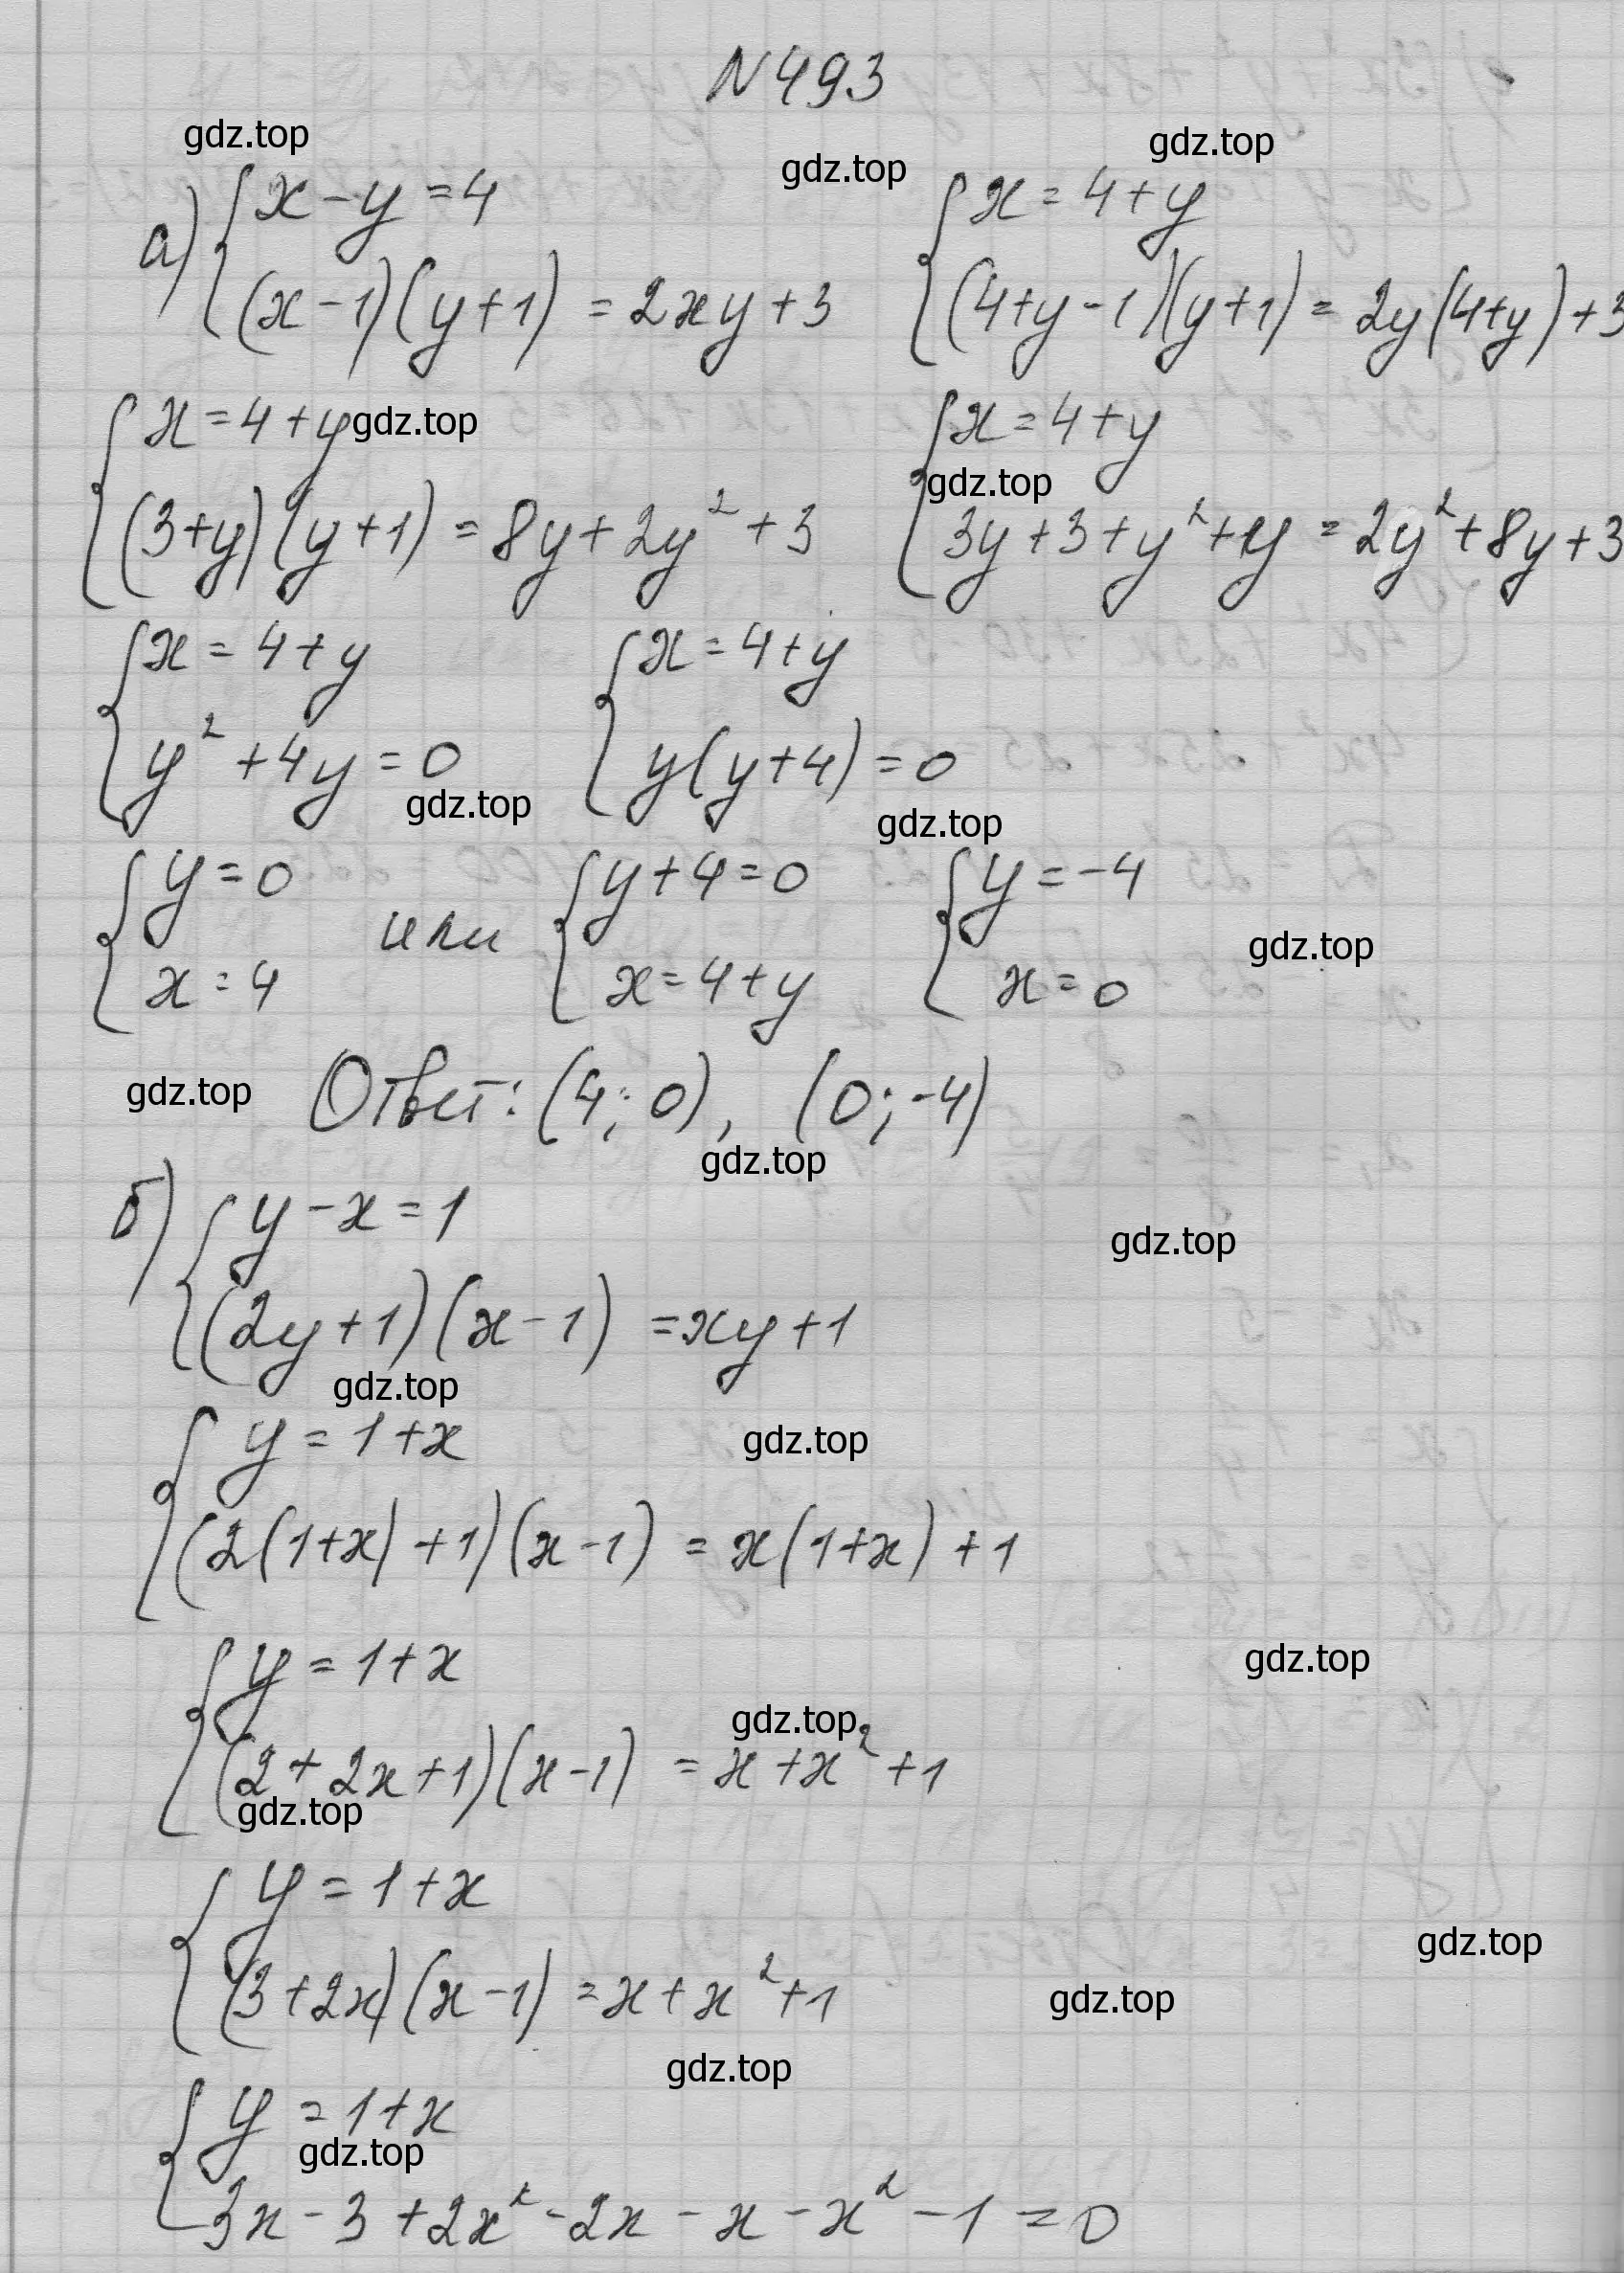 N493
gdz.top
gdz.top
gdz.top
а) { x - y = 4
(x - 1)(y + 1) = 2xy + 3
{ x = 4 + y
(4 + y - 1)(y + 1) = 2y(4 + y) + 3
{ x = 4 + y gdz.top
(3 + y)(y + 1) = 8y + 2y² + 3
{ x = 4 + y
gdz.top
3y + 3 + y² + y = 2y² + 8y + 3
{ x = 4 + y
y² + 4y = 0
gdz.top
{ x = 4 + y
y(y + 4) = 0
gdz.top
{ y = 0
x = 4
или
{ y + 4 = 0
x = 4 + y
{ y = -4
x = 0
gdz.top
gdz.top
Ответ: (4; 0), (0; -4)
gdz.top
б) { y - x = 1
(2y + 1)(x - 1) = xy + 1
gdz.top
gdz.top
{ y = 1 + x
gdz.top
(2(1 + x) + 1)(x - 1) = x(1 + x) + 1
{ y = 1 + x
gdz.top
gdz.top
(2 + 2x + 1)(x - 1) = x + x² + 1
gdz.top
{ y = 1 + x
gdz.top
(3 + 2x)(x - 1) = x + x² + 1
gdz.top
gdz.top
{ y = 1 + x
gdz.top
3x - 3 + 2x² - 2x - x - x² - 1 = 0